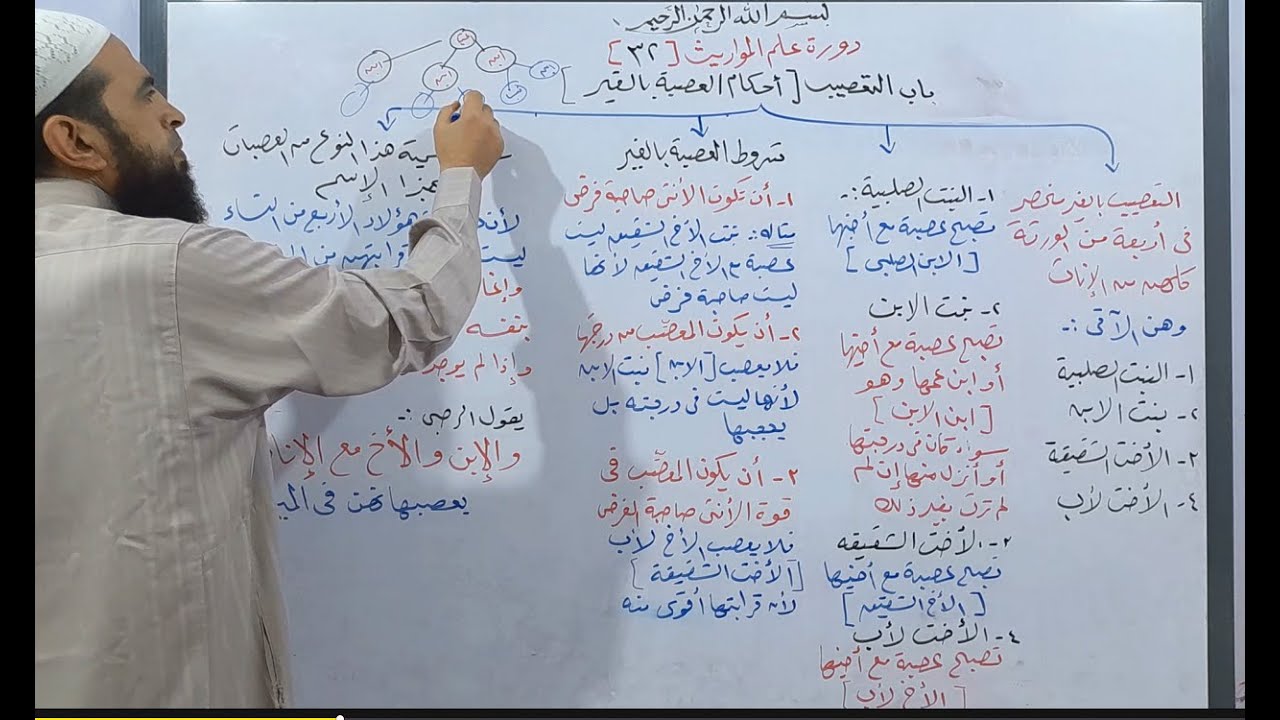 بسم الله الرحمن الرحيم
دورة علم المواريث [٣٢]
باب التعصيب [أحكام العصبة بالغير]
التعصيب بالغير منحصر
فى أربعة من الورثة
كلهن من الإناث
وهن الآتى :-
١- البنت الصلبية
٢- بنت الابن
٣- الأخت الشقيقة
٤- الأخت لأب
١- البنت الصلبية :-
تصبح عصبة مع أخيها
[الابن الصلبى]
٢- بنت الابن
تصبح عصبة مع أخيها
أو ابن عمها وهو
[ابن الابن]
سواء كان فى درجتها
أو أنزل منها إن لم
ترث بغير ذلك
٣- الأخت الشقيقه
تصبح عصبة مع أخيها
[الأخ الشقيق]
٤- الأخت لأب
تصبح عصبة مع أخيها
[الأخ لأب]
شروط العصبة بالغير
١- أن تكون الأنثى صاحبة فرض
مثاله :- بنت الأخ الشقيق ليست
عصبة مع الأخ الشقيق لأنها
ليست صاحبة فرض
٢- أن يكون المعصّب من درجتها
فلا يعصب [الابن] بنت الابن
لأنها ليست فى درجته بل
يحجبها
٣- أن يكون المعصّب فى
قوة الأنثى صاحبة الفرض
فلا يعصب الأخ لأب
[الأخت الشقيقة]
لأن قرابتها أقوى منه
هذا النوع من العصبات
بهذا الإسم
هؤلاء الأربع من النساء
ليست قرابتهن من
وإنما
بنفسه
وإذا لم يوجد
يقول الرحبى :-
والإبن والأخ مع الإناث
يعصبانهن فى